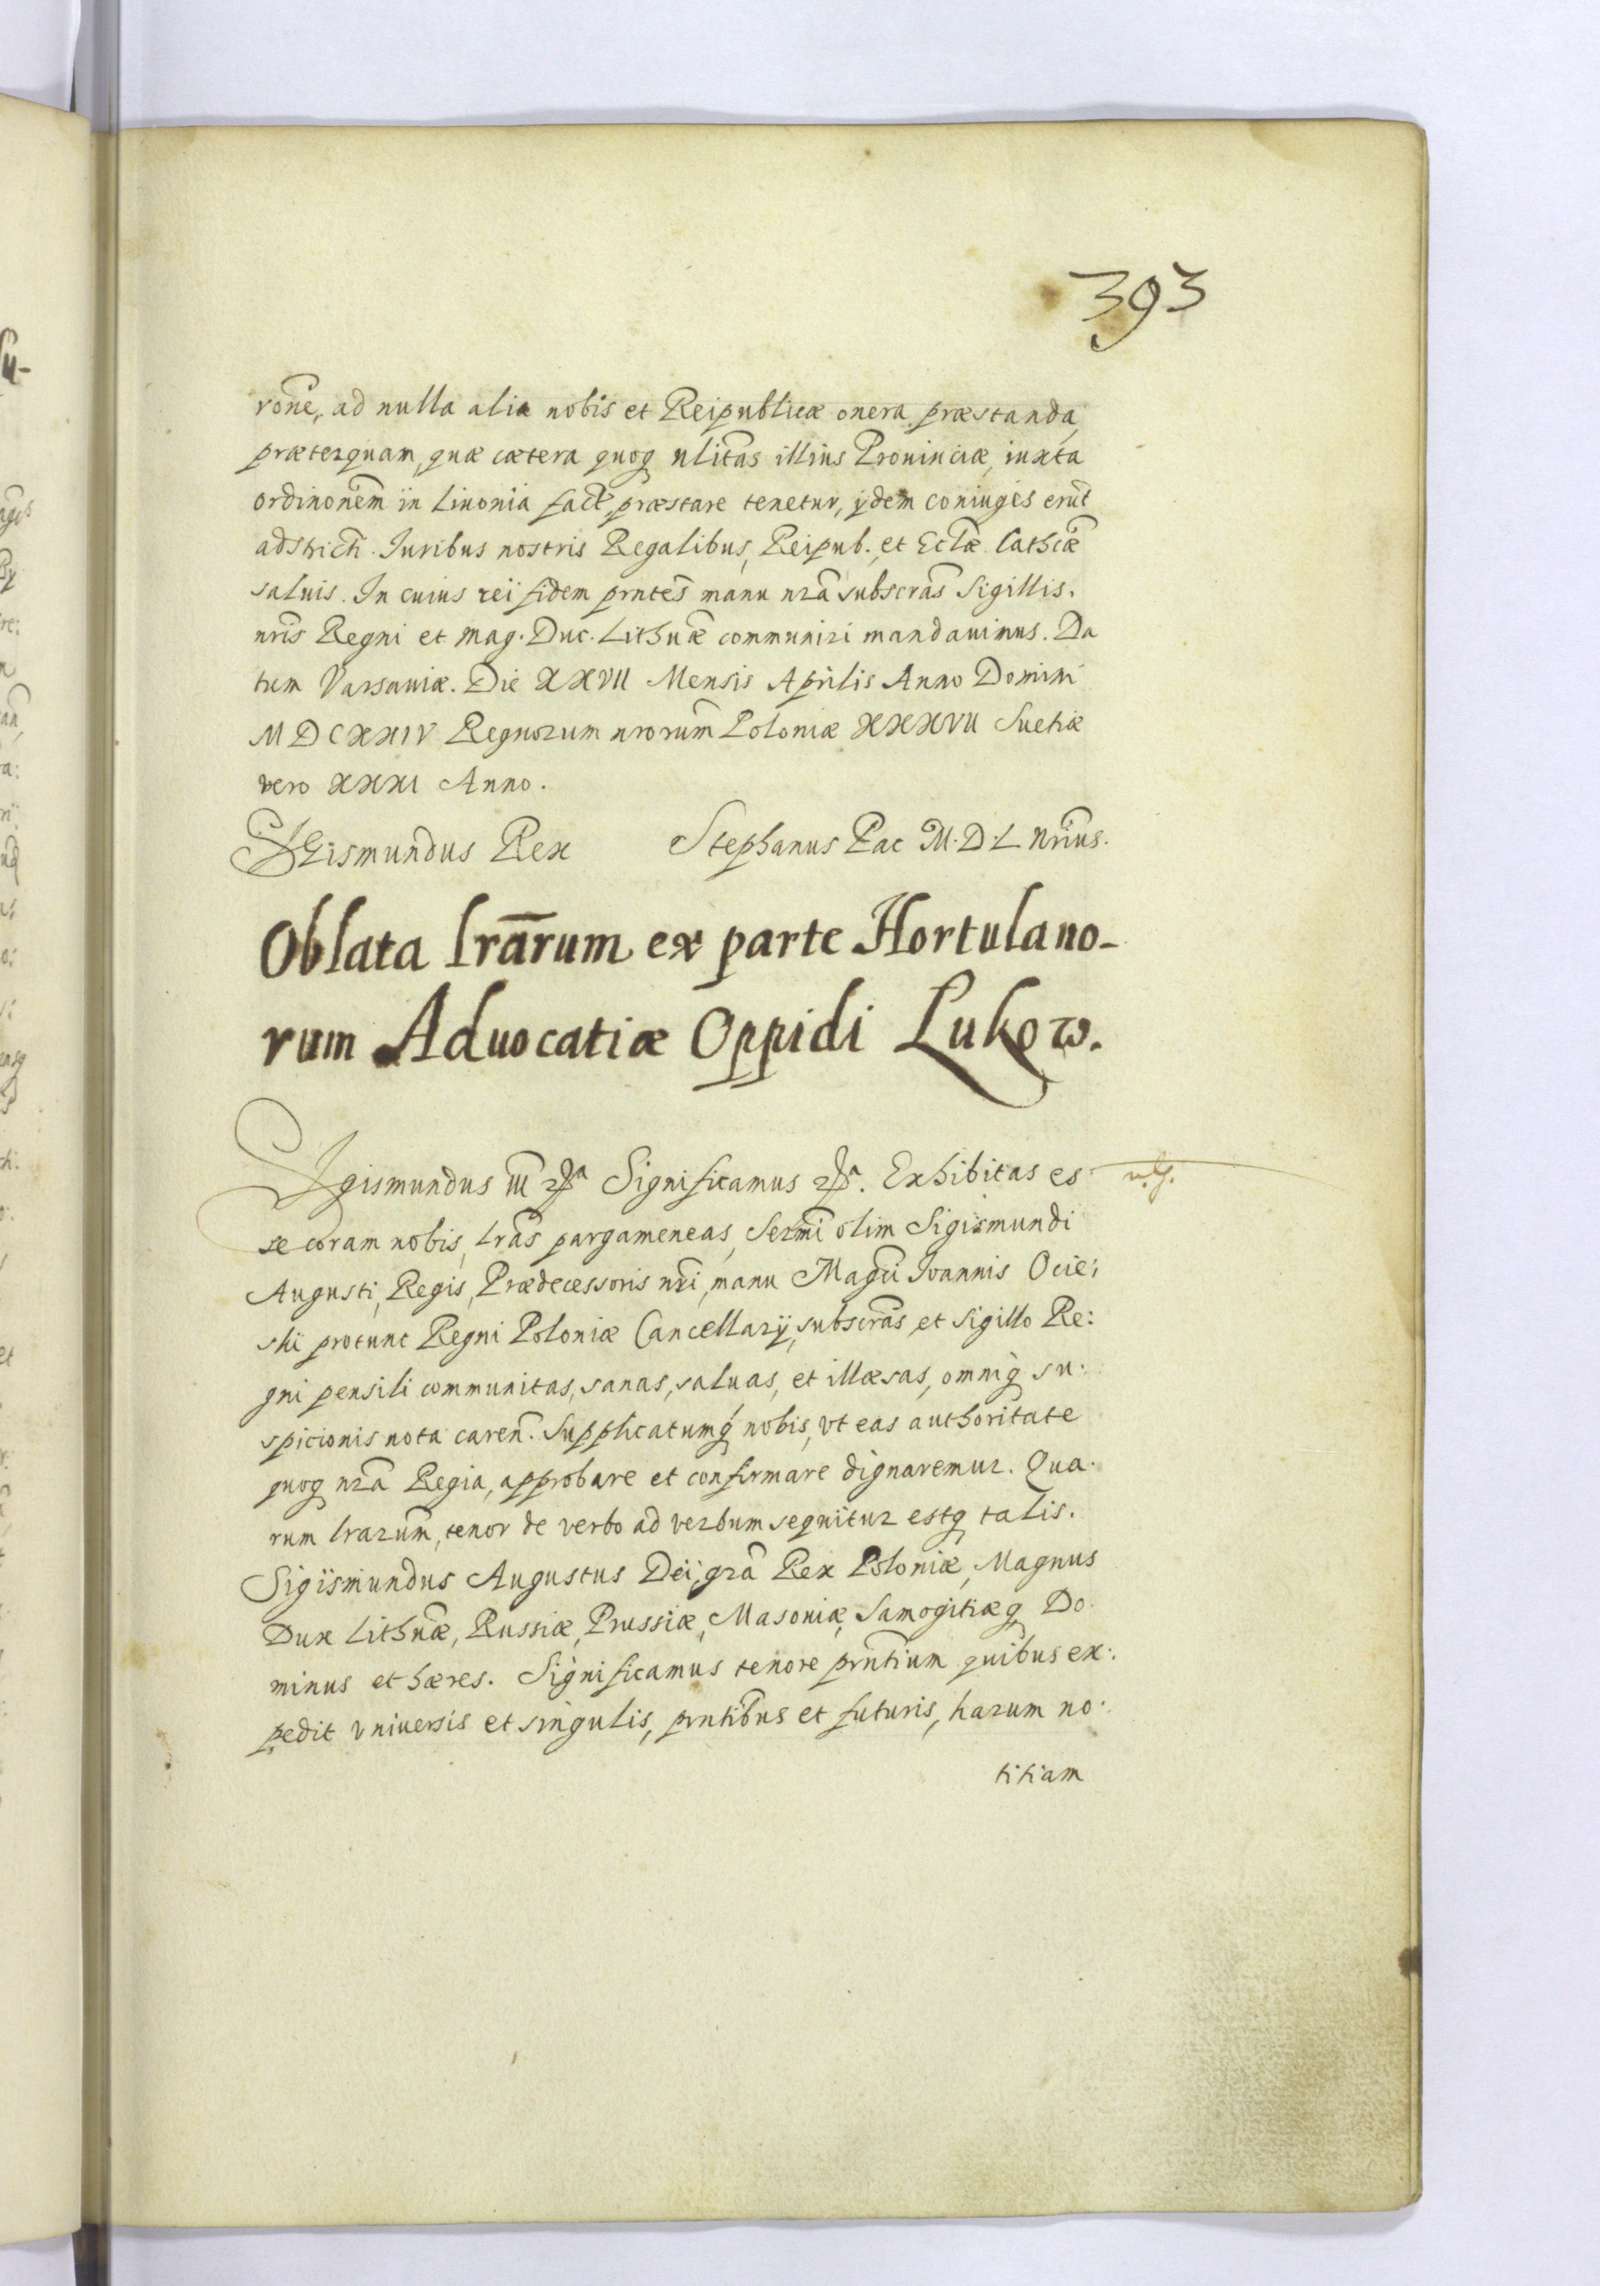 393
rone, ad nulla alia nobis et Reipublicæ onera præstanda,
præterquam, quæ cætera quoq nlitas illius Prouinciæ, iuxta
ordinonem in Liuonia fact, præstare tenetur, ydem coniuges erut
adstricti. Iuribus nostris Regalibus, Reipub. et Eclæ Cathcæ
saluis. In cuius rei fidem prntes manu nra subscras Sigillis.
nris Regni et Mag. Duc. Lithuæ communiri mandauimus. Da
tum Varsauiæ. Die XXVII Mensis Aprilis Anno Domini
MDCXXIV Regnorum nrorum Poloniæ XXXVII Suetiæ
vero XXXI Anno.
SIgismundus Rex Stephanus Pac M. D. L Nrius.
Oblata lrarum ex parte Hortulano-
rum Aduocatiæ Oppidi Lukow.
SIgismundus III Significamus Exhibitas es
se coram nobis, lras pargameneas, Sermi olim Sigismundi
Augusti, Regis, Prædecessoris nri, manu Magci Ioannis Ocie:
ski protunc Regni Poloniæ Cancellary, subscras et Sigillo Re:
gni pensili communitas, sanas, saluas, et illæsas, omniq su:
spicionis nota caren. Supplicatumq nobis, vt eas authoritate
quoq nra Regia, approbare et confirmare dignaremur. Qua:
rum lrarum, tenor de verbo ad verbum sequitur estq talis.
Sigismundus Augustus Dei, gra Rex Poloniæ, Magnus
Dux Lithuæ, Russiæ, Prussiæ, Masoniæ, Samogitiæq Do:
minus et hæres. Significamus tenore prntium quibus ex:
pedit vniuersis et singulis, prntibus et futuris, harum no:
titiam